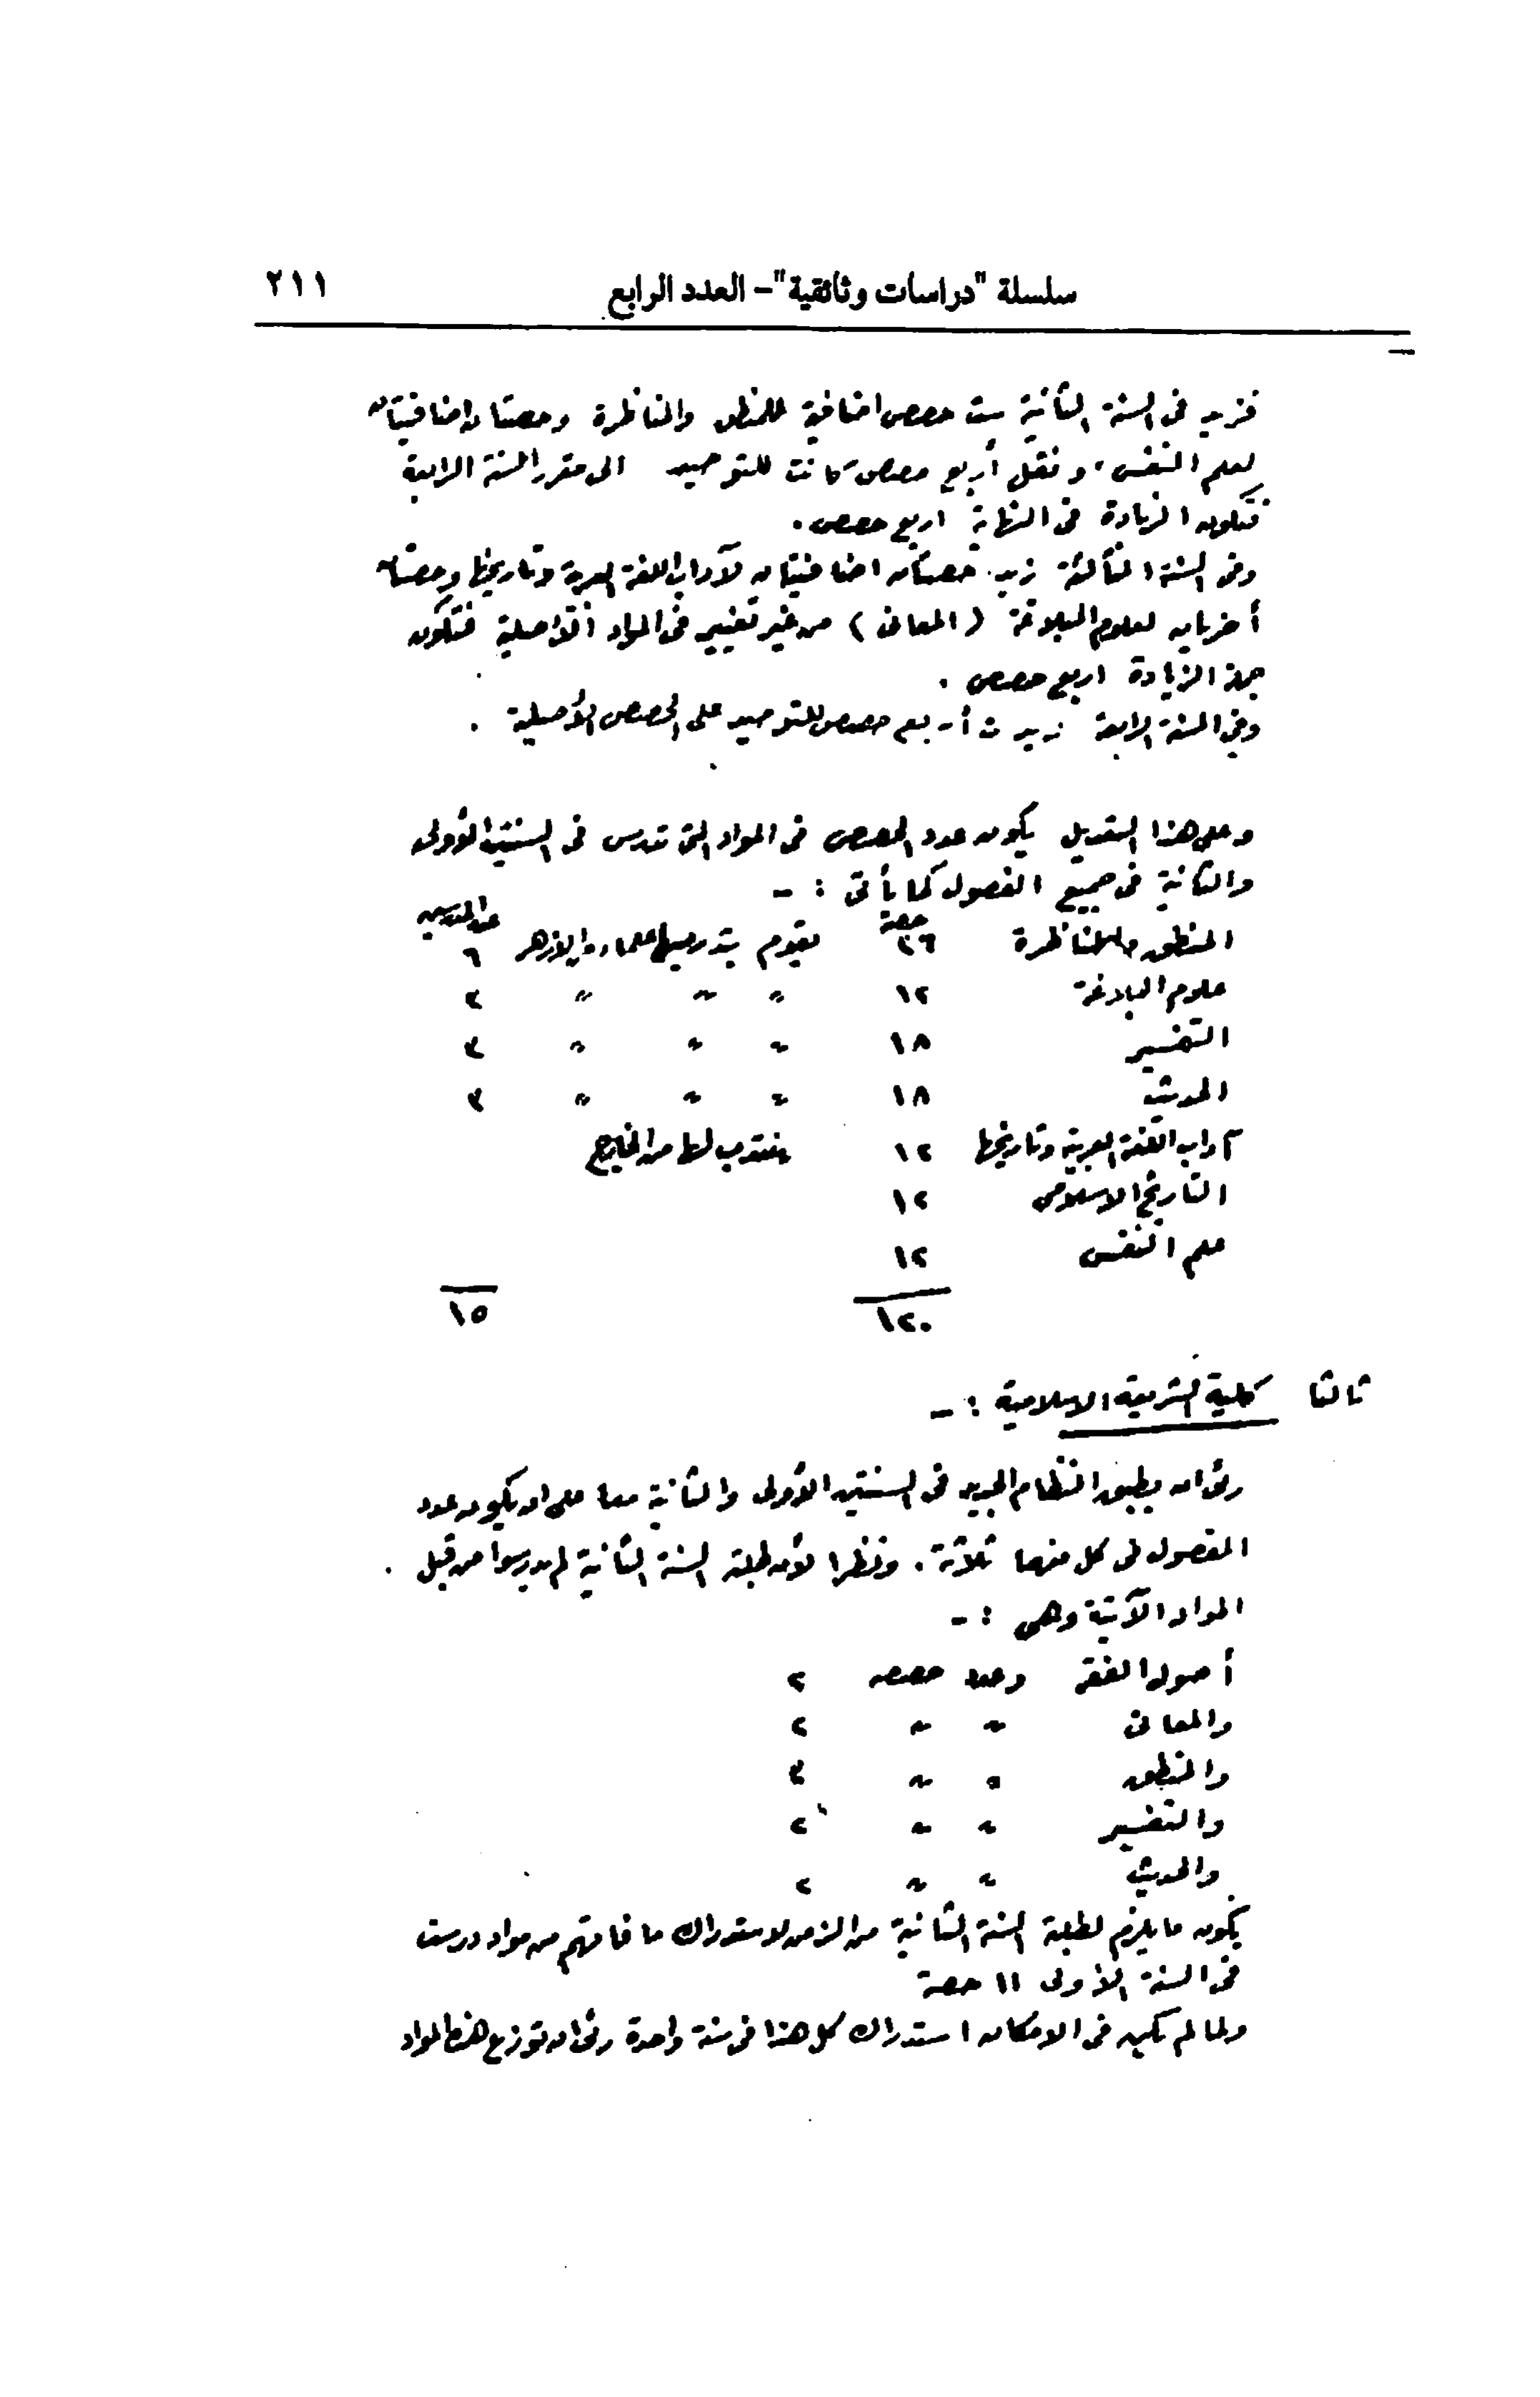 سلسلة "دراسات وثائقية" – العدد الرابع ٢١١
فزيد فى السنة الثانية ست حصص اضافية للمنطق والمناظرة وحصتان اضافيتان
لعلم النفس، ونقل أربع حصص كانت للتوحيد الى مقرر السنة الرابعة
فتكون الزيادة فى النهاية اربع حصص.
وفى السنة الثالثة زيد حصتان اضافيتان لآداب اللغة العربية وتاريخها وحصتان
أخريان لعلوم البلاغة (المعانى) من غير تغيير فى المواد الأصلية فتكون
جملة الزيادة اربع حصص.
وفى السنة الرابعة زيدت أربع حصص للتوحيد على الحصص الأصلية.
وعلى هذا التعديل يكون عدد الحصص فى المواد التى تدرس فى السنتين الأولى
والثانية فى جميع الفصول كما يأتى :-
حصة عدد المدرسين
المنطق والمناظرة ٣٦ يقوم بتدريسها علماء الأزهر ٦
علوم البلاغة ١٢ " " " ٢
التفسير ١٨ " " " ٣
الحديث ١٨ " " " ٣
آداب اللغة العربية وتاريخها ١٢ ينتدب لها من الخارج
التاريخ الاسلامى ١٢
علم النفس ١٢
١٢٠ ١٥
ثالثا كلية الشريعة الاسلامية :-
رئى ان يطبق النظام الجديد فى السنتين الأولى والثانية معا على ان يكون عدد
الفصول فى كل منهما ثلاثة. ونظرا لأن طلبة السنة الثانية لم يدرسوا من قبل.
المواد الآتية وهى :-
أصول الفقه وعدد حصصه ٢
والمعانى " " ٢
والمنطق " " ٣
والتفسير " " ٢
والحديث " " ٢
يكون ما يلزم لطلبة السنة الثانية من الزمن لاستدراك ما فاتهم من مواد درست
فى السنة الأولى ١١ حصة
ولما لم يكن فى الامكان استدراك كل هذا فى سنة واحدة رئى ان توزع هذه المواد